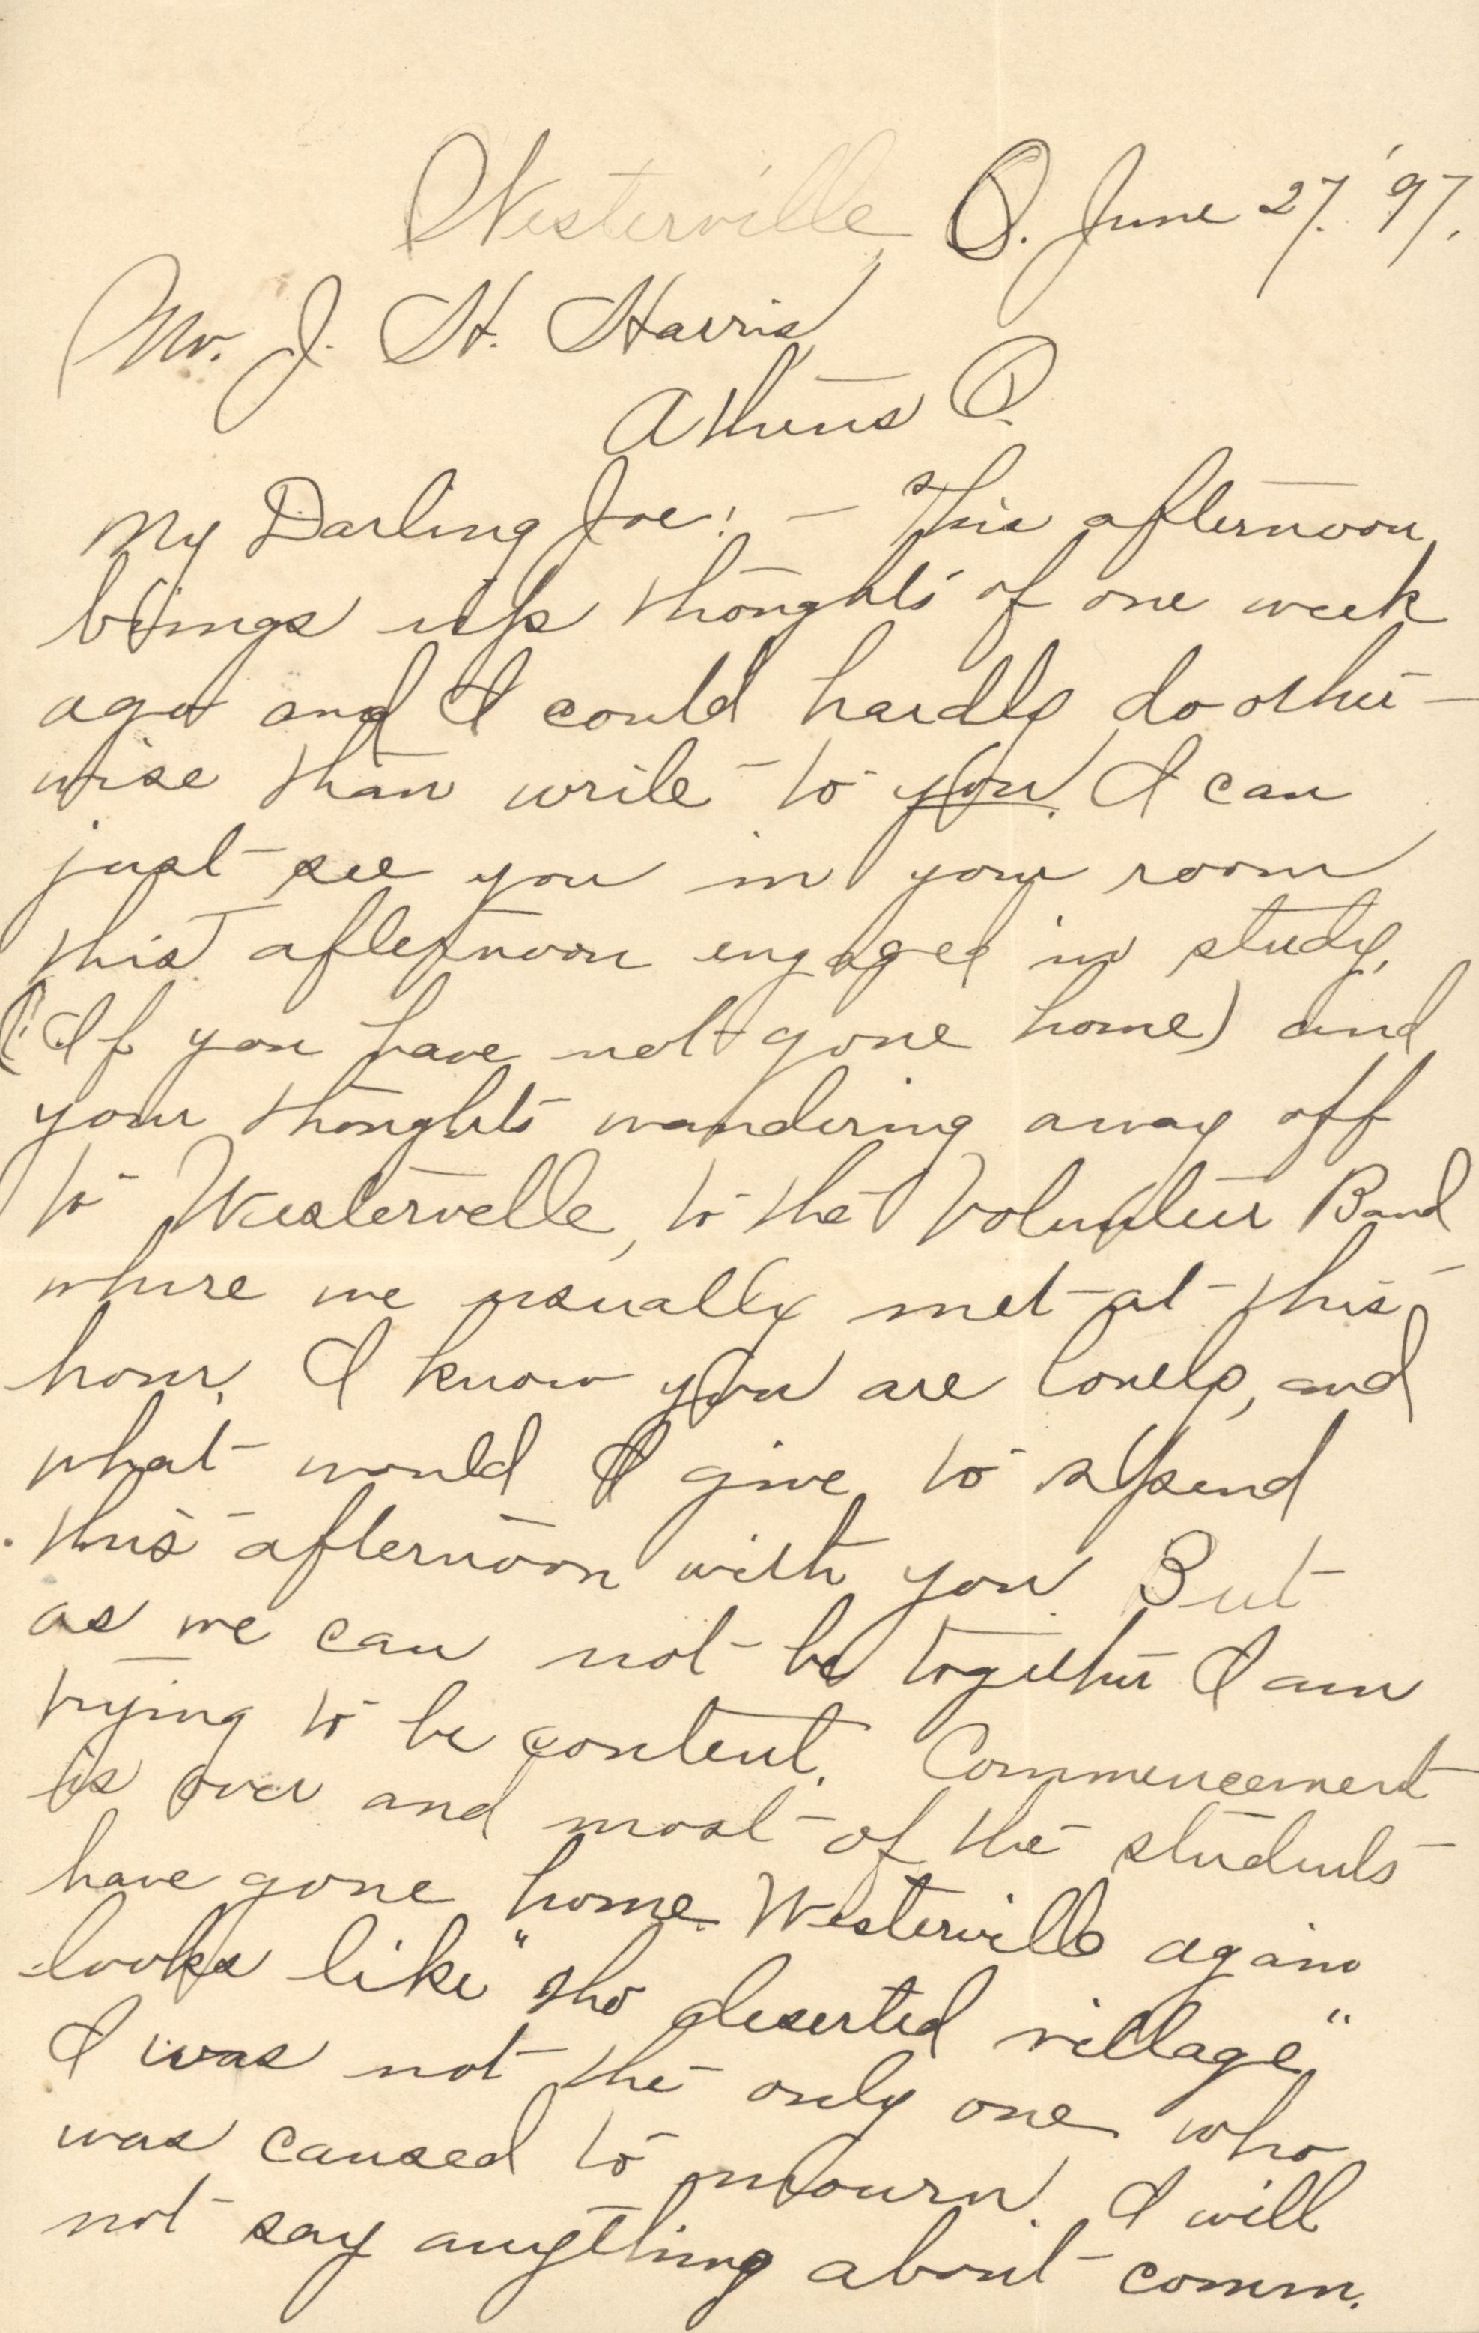 Westerville, O. June 27. '97.
Mr. J. H. Harris,
Athens O.
My Darling Joe! — This afternoon
brings up thoughts of one week
ago and I could hardly do other-
wise than write to you. I can
just see you in your room
this afternoon engaged in study,
(If you have not gone home) and
your thoughts wandering away off
to Westerville, to the Volunteer Band
where we usually met at this
hour. I know you are lonely, and
what would I give to spend
this afternoon with you But
as we can not be together I am
trying to be content. Commencement
is over and most of the students
have gone home. Westerville again
looks like "the deserted village"
I was not the only one who
was caused to mourn. I will
not say anything about comm.